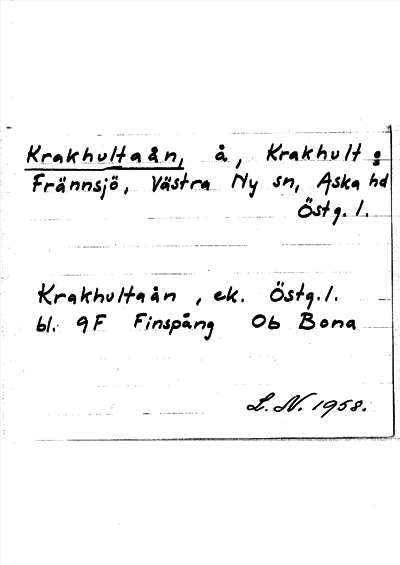 Krakhultaån, å, Krakhult :
Frännsjö, Västra Ny sn, Aska hd
Östg. l.
Krakhultaån, ek. Östg. l.
bl. 9F Finspång Ob Bona
L. N. 1958.